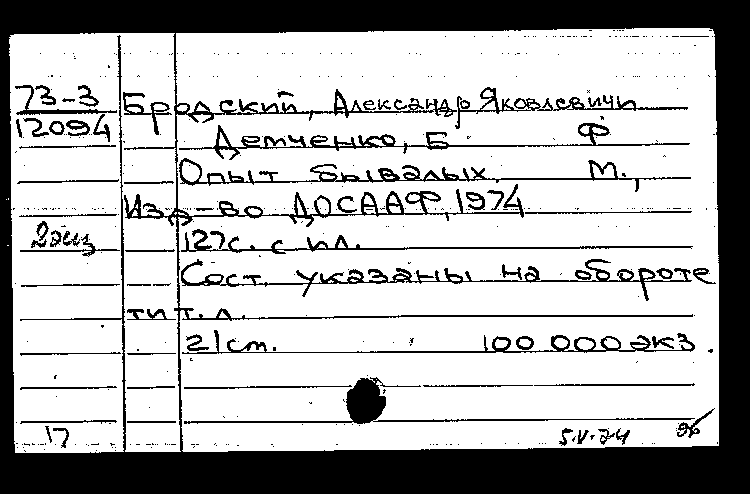 73-3 Бродский, Александр Яковлевичи
12094 Демченко, Б. Ф
Опыт бывалых. М.,
Изд-во ДОСААФ, 1974
2экз 127с. с ил.
Сост. указаны на обороте
тит. л.
21 см. 100 000 экз.
17 5.V.74